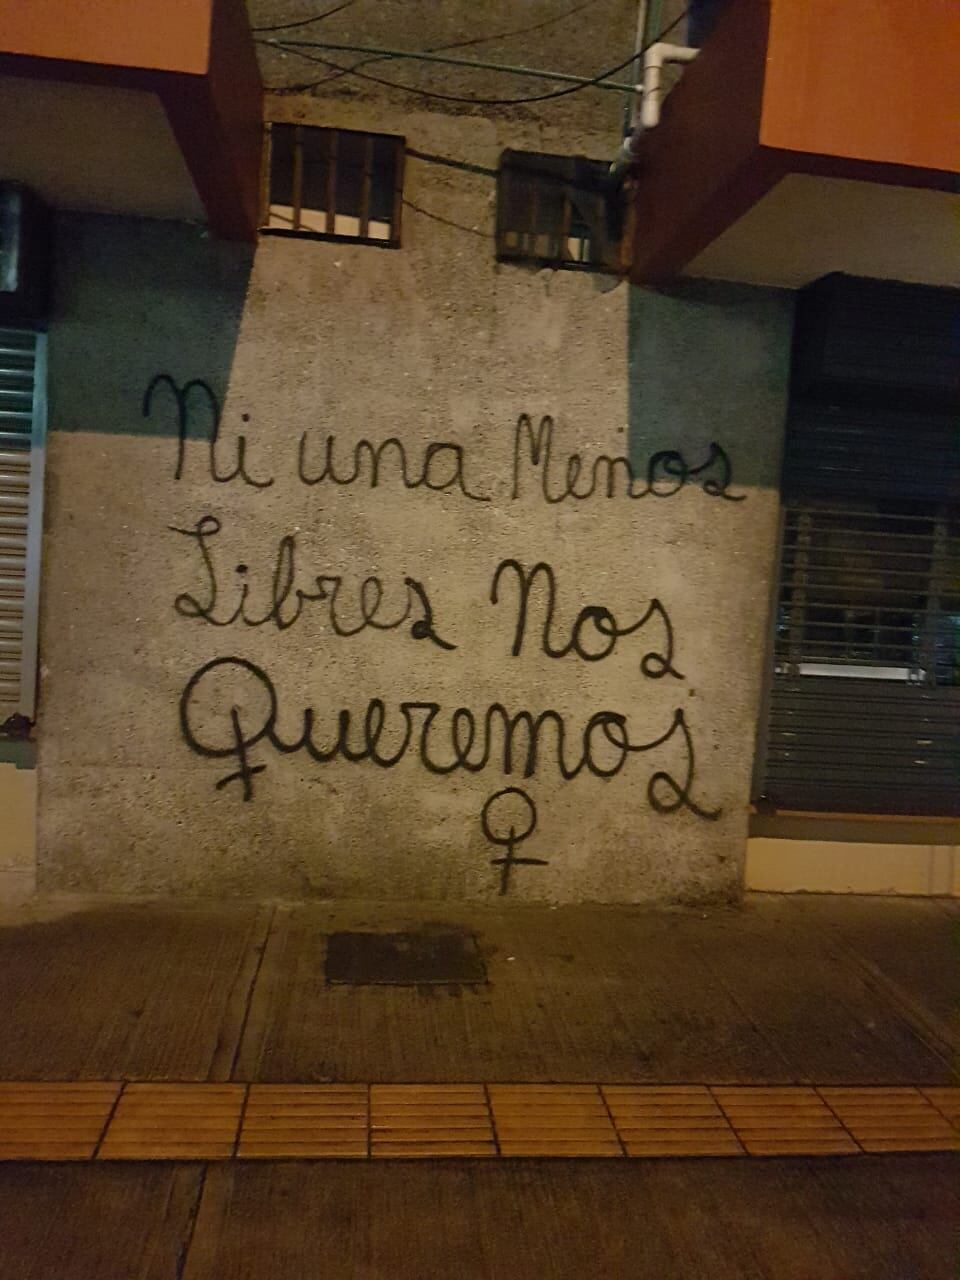 Ni una Menos
Libres Nos
Queremos
♀